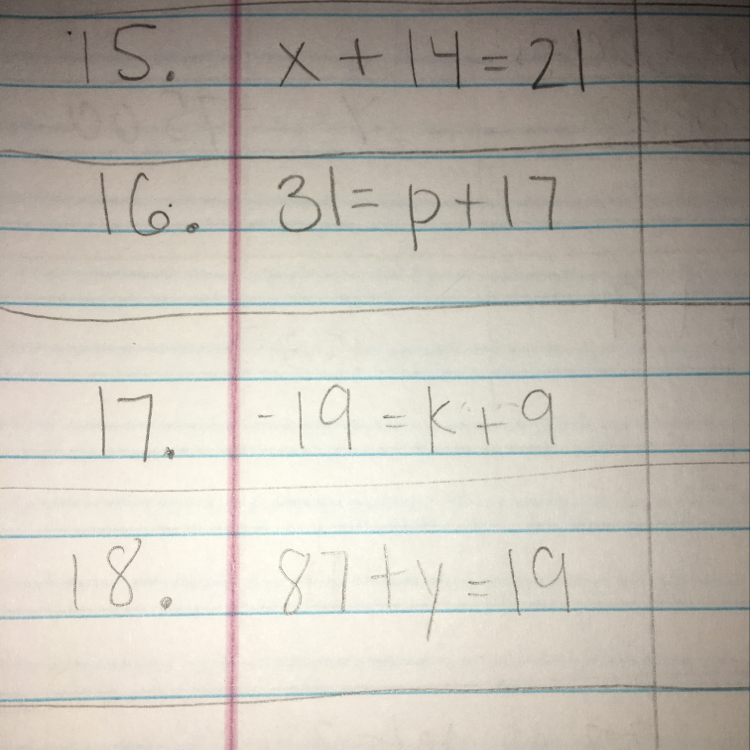 15. x + 14 = 21
16. 31 = p + 17
17. -19 = k + 9
18. 87 + y = 19